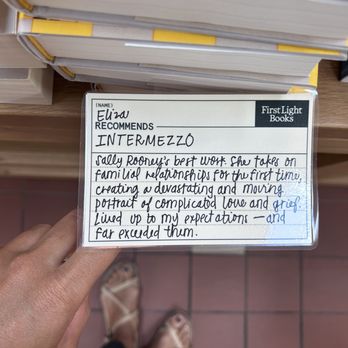 (NAME)
Eliza
RECOMMENDS
First Light
Books
INTERMEZZO
Sally Rooney's best work. She takes on
familial relationships for the first time,
creating a devastating and moving
portrait of complicated love and grief.
Lived up to my expectations — and
far exceeded them.